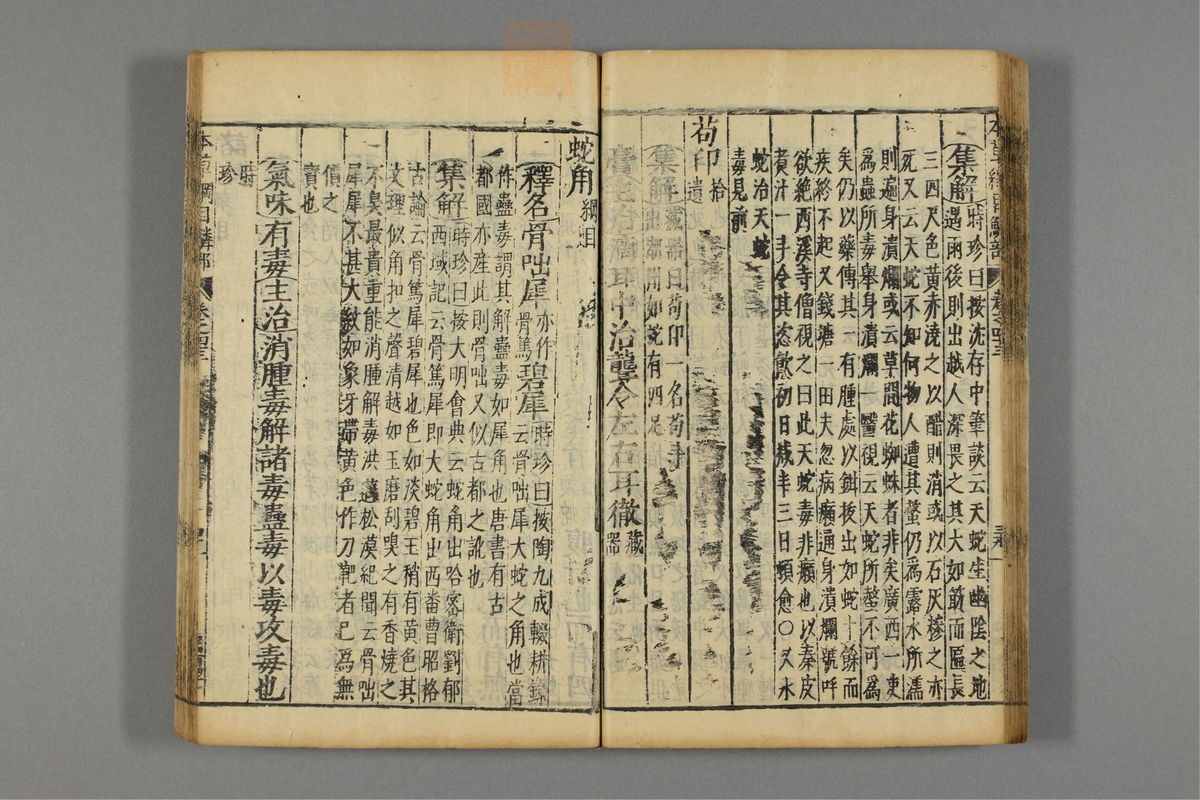 集解時珍曰按沈存中筆談云天蛇生幽陰之地
遇雨後則出越人深畏之其大如筯而匾長
三四尺色黃赤澆之以醋則消或以石灰摻之亦
死又云天蛇不知何物人遭其螫仍為露水所濡
則遍身潰爛或云草間花蜘蛛者非矣廣西一吏
為蟲所毒舉身潰爛一醫視云天蛇所螫不可為
矣仍以藥傅其一有腫處以鉗拔出如蛇十餘而
疾終不起又錢塘一田夫忽病癩通身潰爛號呼
欲絕西溪寺僧視之曰此天蛇毒非癩也以秦皮
煮汁一
蛇治天蛇
毒見前
苟印拾遺
集解藏器曰苟印一名苟斗
出
有四足
耳中治聾令左右耳徹藏器
蛇角綱目
釋名骨咄犀亦作骨篤碧犀時珍曰按陶九成輟耕錄
云骨咄犀大蛇之角也當
作蠱毒謂其解蠱毒如犀角也唐書有古
都國亦産此則骨咄又似古都之訛也
集解時珍曰按大明會典云蛇角出哈密衛劉郁
西域記云骨篤犀即大蛇角出西番曹昭格
古論云骨篤犀碧犀也色如淡碧玉稍有黃色其
文理似角扣之聲清越如玉磨刮嗅之有香燒之
不臭最貴重能消腫解毒洪邁松漠紀聞云骨咄
犀犀不甚大紋如象牙帶黃色作刀靶者已為無
價之
寶也
氣味有毒主治消腫毒解諸毒蠱毒以毒攻毒也
時
珍
本草綱目鱗部